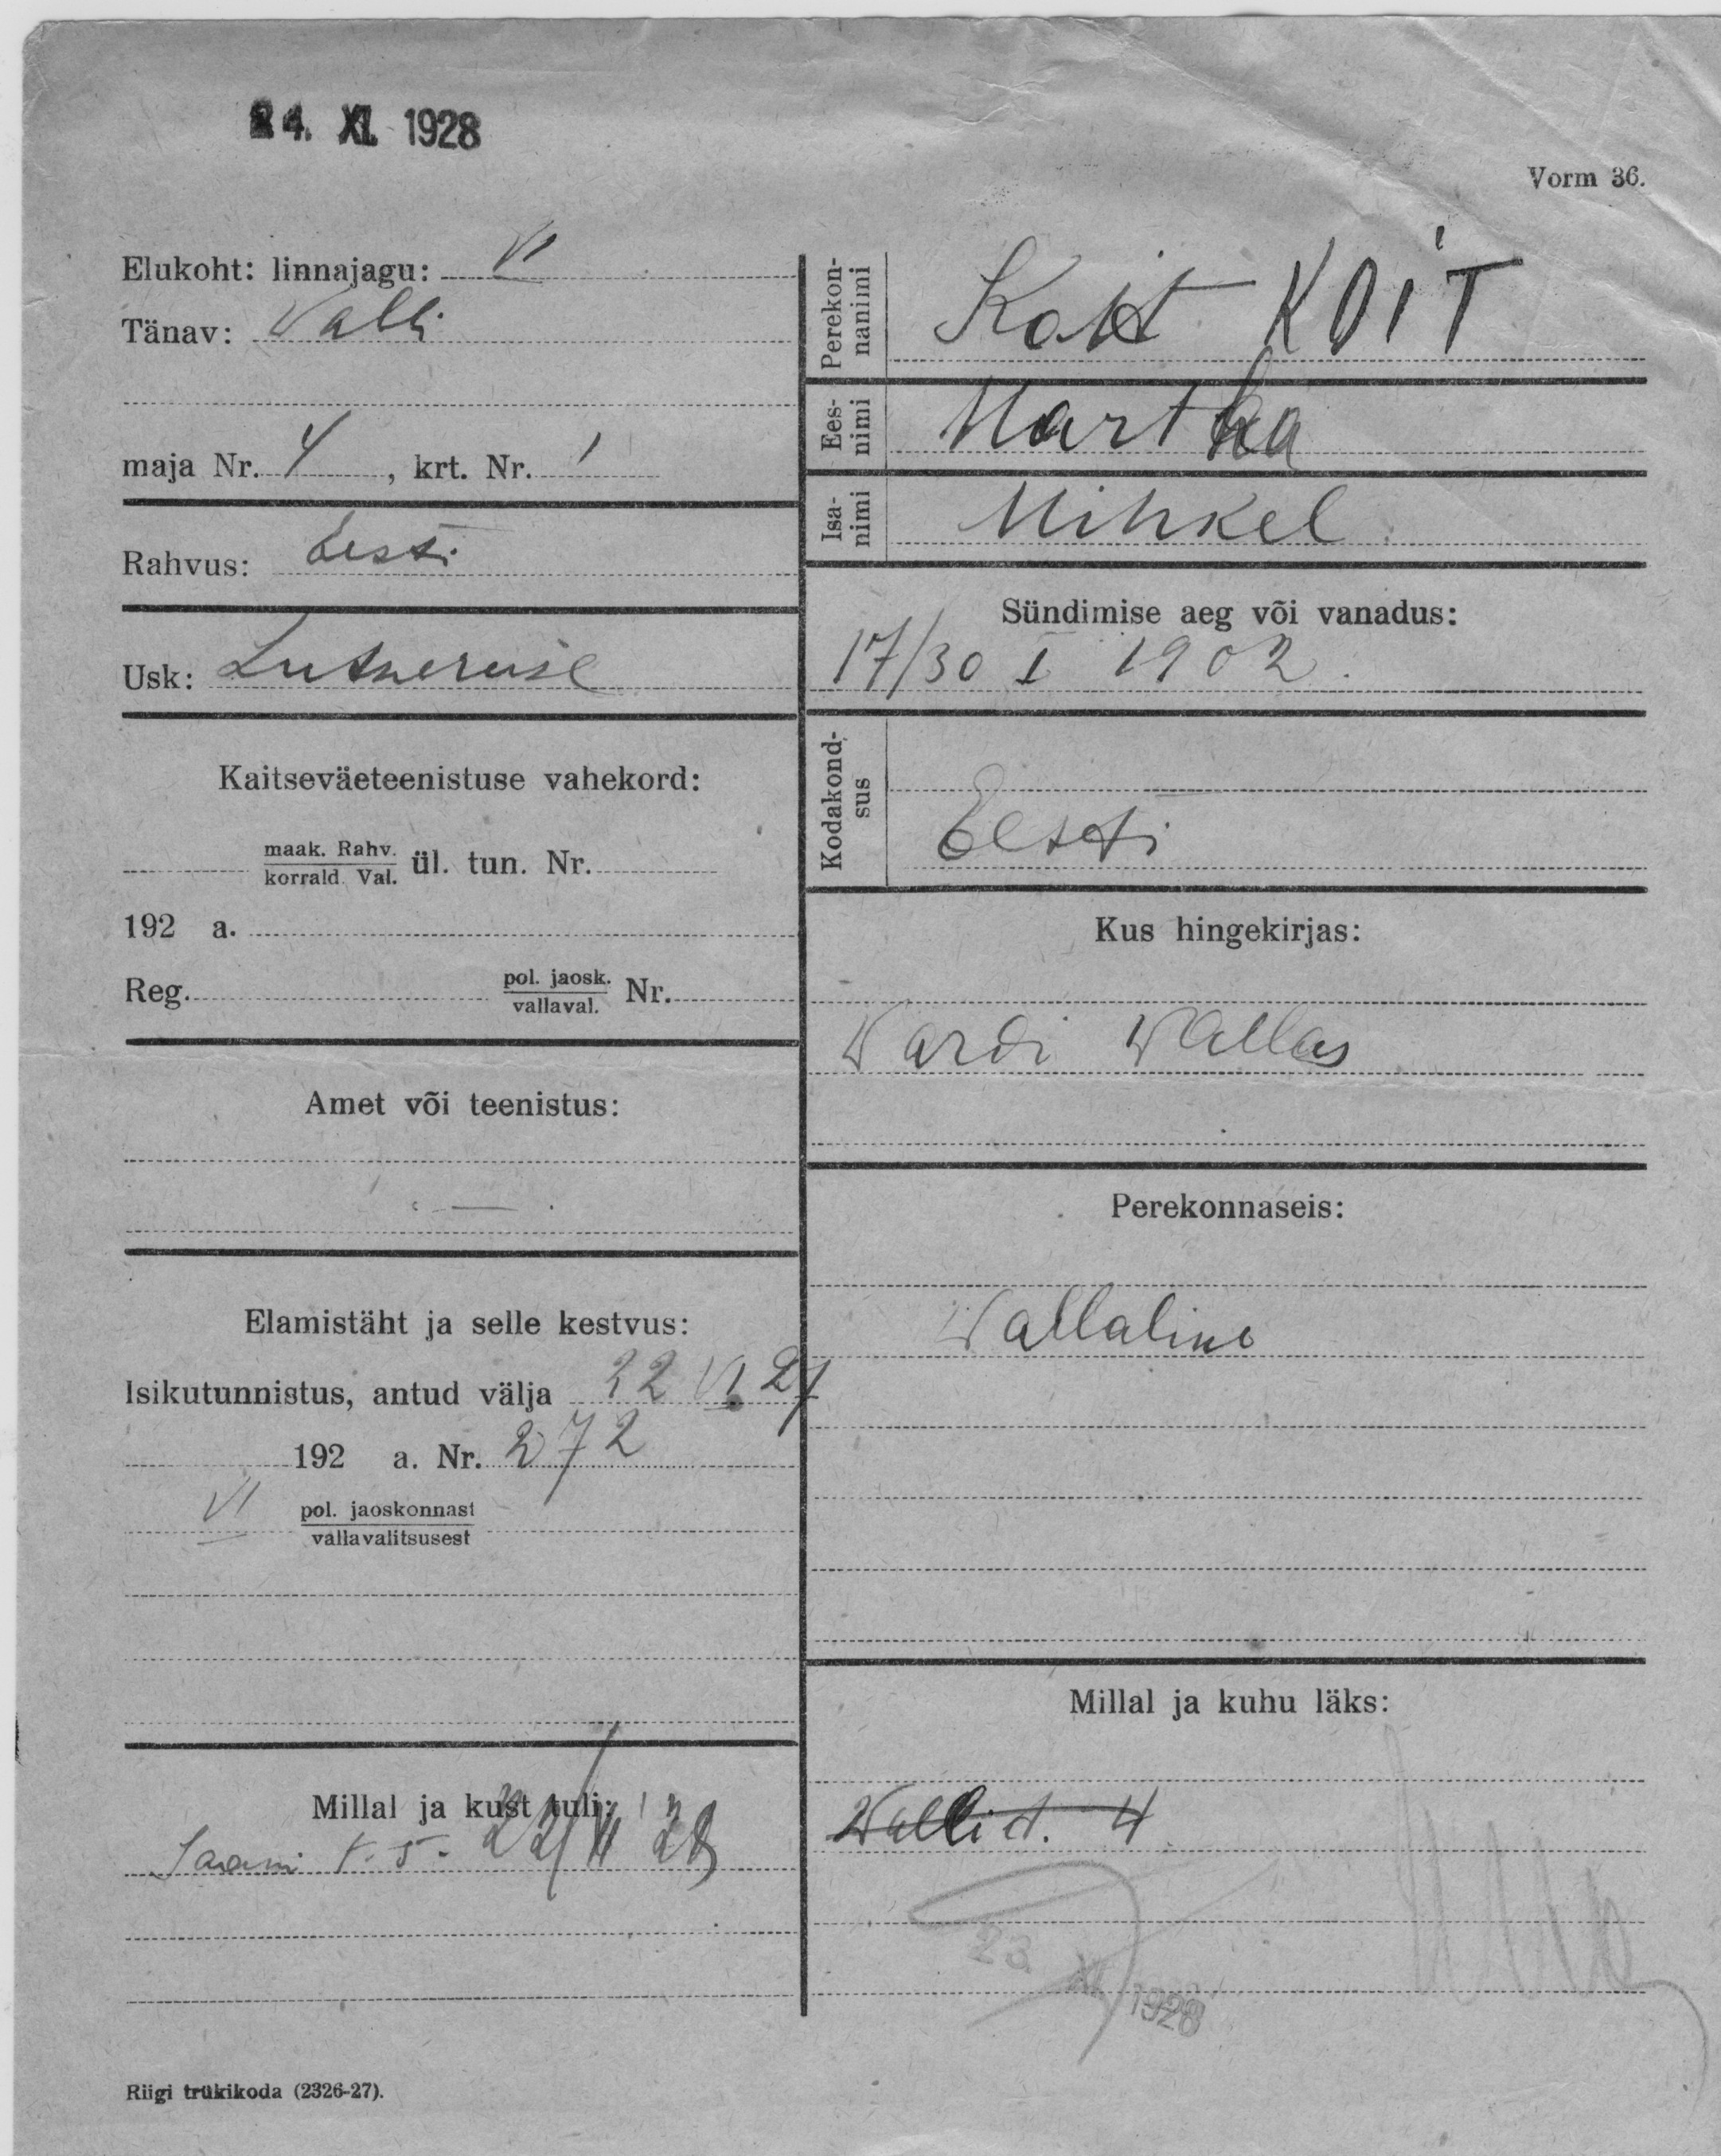 24. XI. 1928
Vorm 36.
Elukoht: linnajagu: VI
Tänav: Valli
maja Nr. 4, krt. Nr. 1
Rahvus: Eesti
Usk: Lutheruse
Kaitseväeteenistuse vahekord:
maak. Rahv.
korrald. Val. ül. tun. Nr.
192 a.
Reg. pol. jaosk.
vallaval. Nr.
Amet või teenistus:
—
Elamistäht ja selle kestvus:
Isikutunnistus, antud välja 22 VI 27
192 a. Nr. 272
VI pol. jaoskonnast
vallavalitsusest
Millal ja kust tuli:
t. 5. 22/XI 28
Perekonnanimi Koit KOIT
Eesnimi Martha
Isanimi Mihkel
Sündimise aeg või vanadus:
17/30 I 1902.
Kodakondsus
Eesti
Kus hingekirjas:
Wardi Wallas
Perekonnaseis:
Wallaline
Millal ja kuhu läks:
Walli t. 4
23 XI 1928
Riigi trükikoda (2326-27).